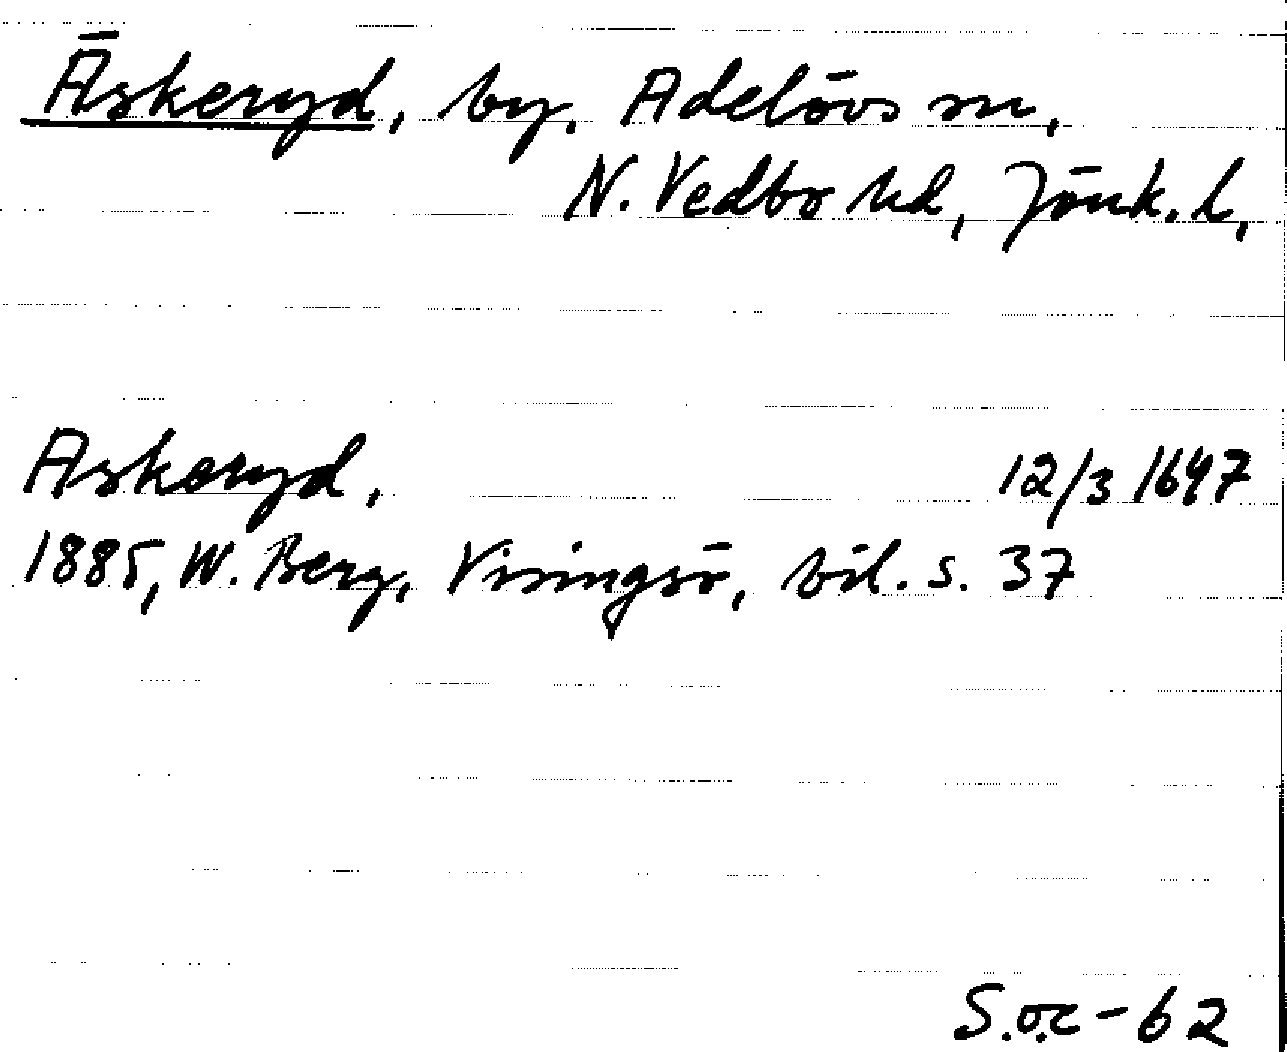 Äskeryd, by, Adelövs sn,
N. Vedbo hd, Jönk. l,
Askeryd, 12/3 1647
1885, W. Berg, Visingsö, bil. s. 37
S.O.C-62